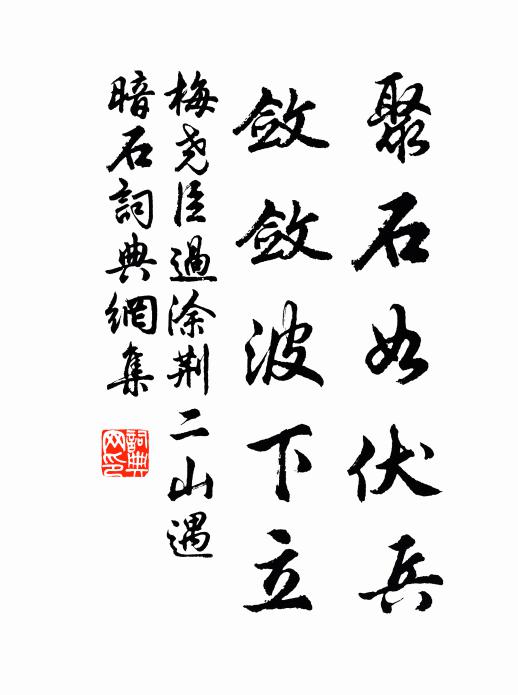 聚石如伏兵
斂斂波下立
梅尧臣過涂荆二山遇
暗石詞典網集
詞典
网印